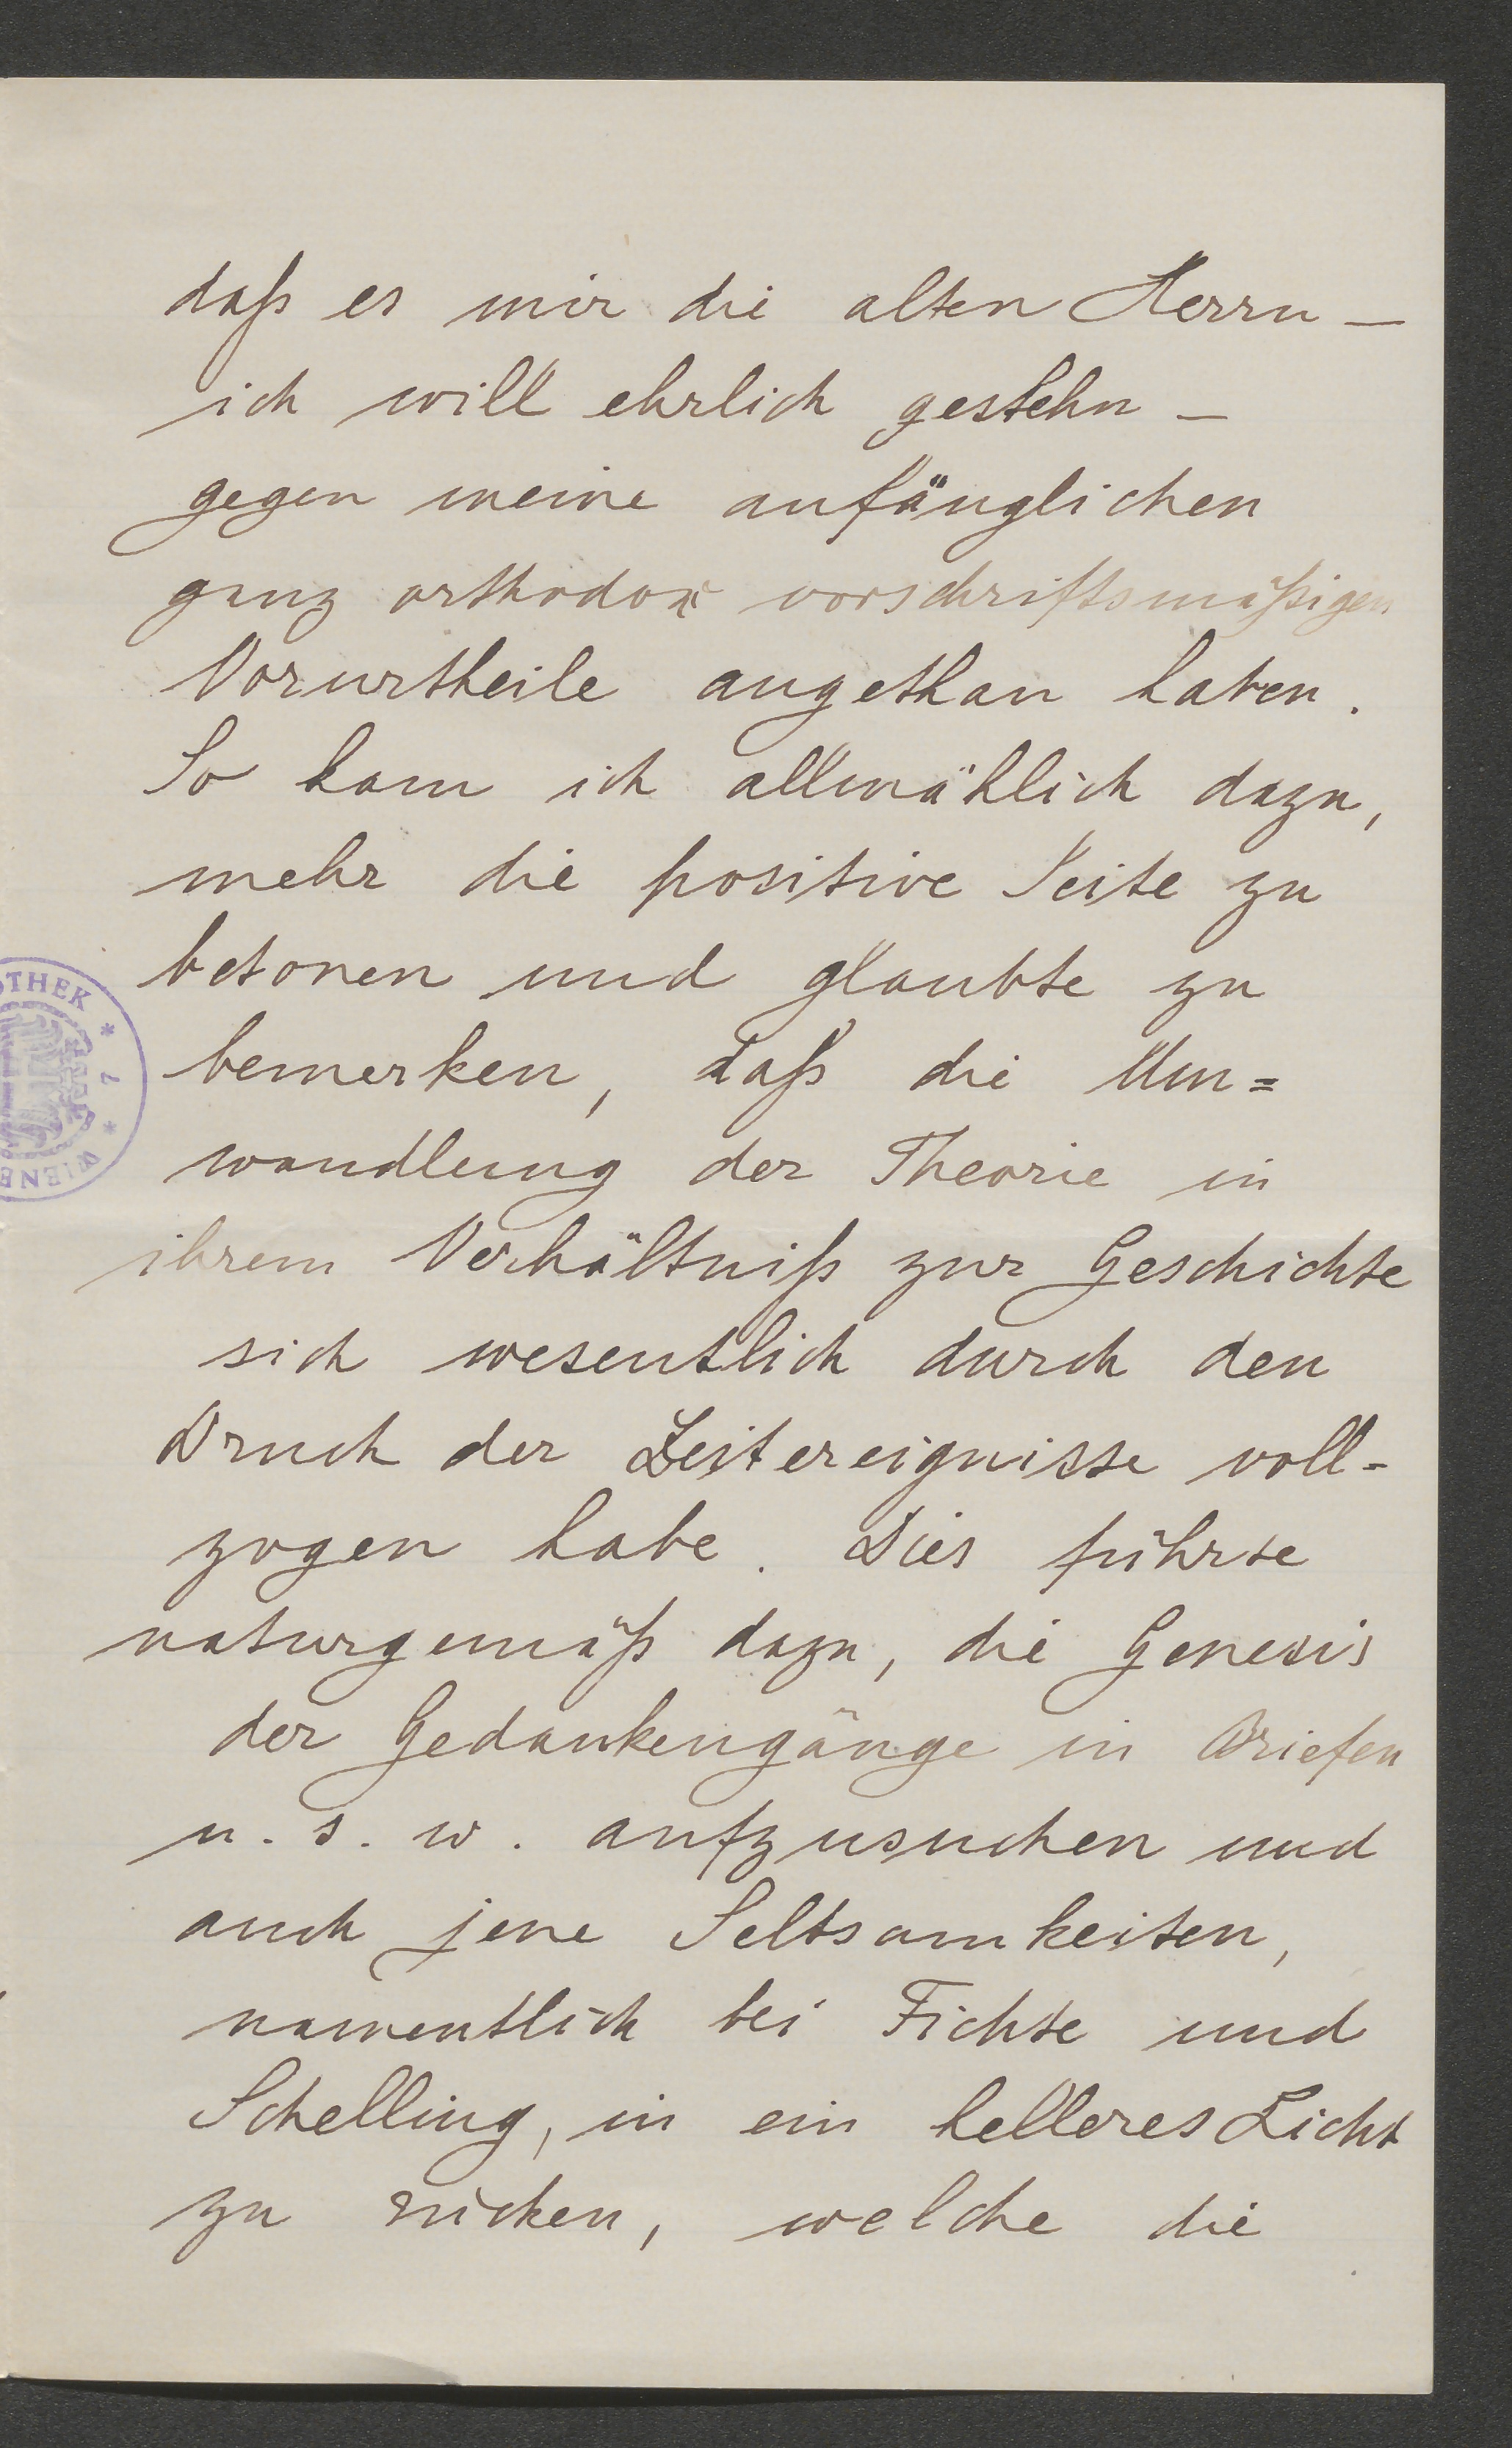 daß es mir die alten Herrn –
ich will ehrlich gestehn –
gegen meine anfänglichen
ganz orthodox vorschriftsmäßigen
Vorurtheile angethan haben.
So kam ich allmählich dazu,
mehr die positive Seite zu
betonen und glaubte zu
bemerken, daß die Um=
wandlung der Theorie in
ihrem Verhältniß zur Geschichte
sich wesentlich durch den
Druck der Zeitereignisse voll-
zogen habe. Dies führte
naturgemäß dazu, die Genesis
der Gedankengänge in Briefen
u. s. w. aufzusuchen und
auch jene Seltsamkeiten,
namentlich bei Fichte und
Schelling, in ein helleres Licht
zu rücken, welche die
OTHEK * 7 * WIENE